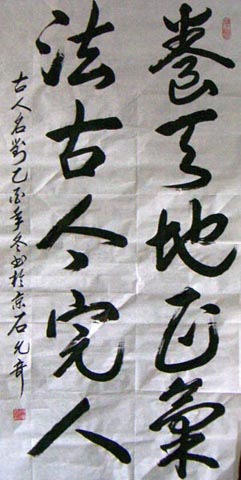 養天地正氣
法古今完人
古人名對乙酉年冬书於京石允